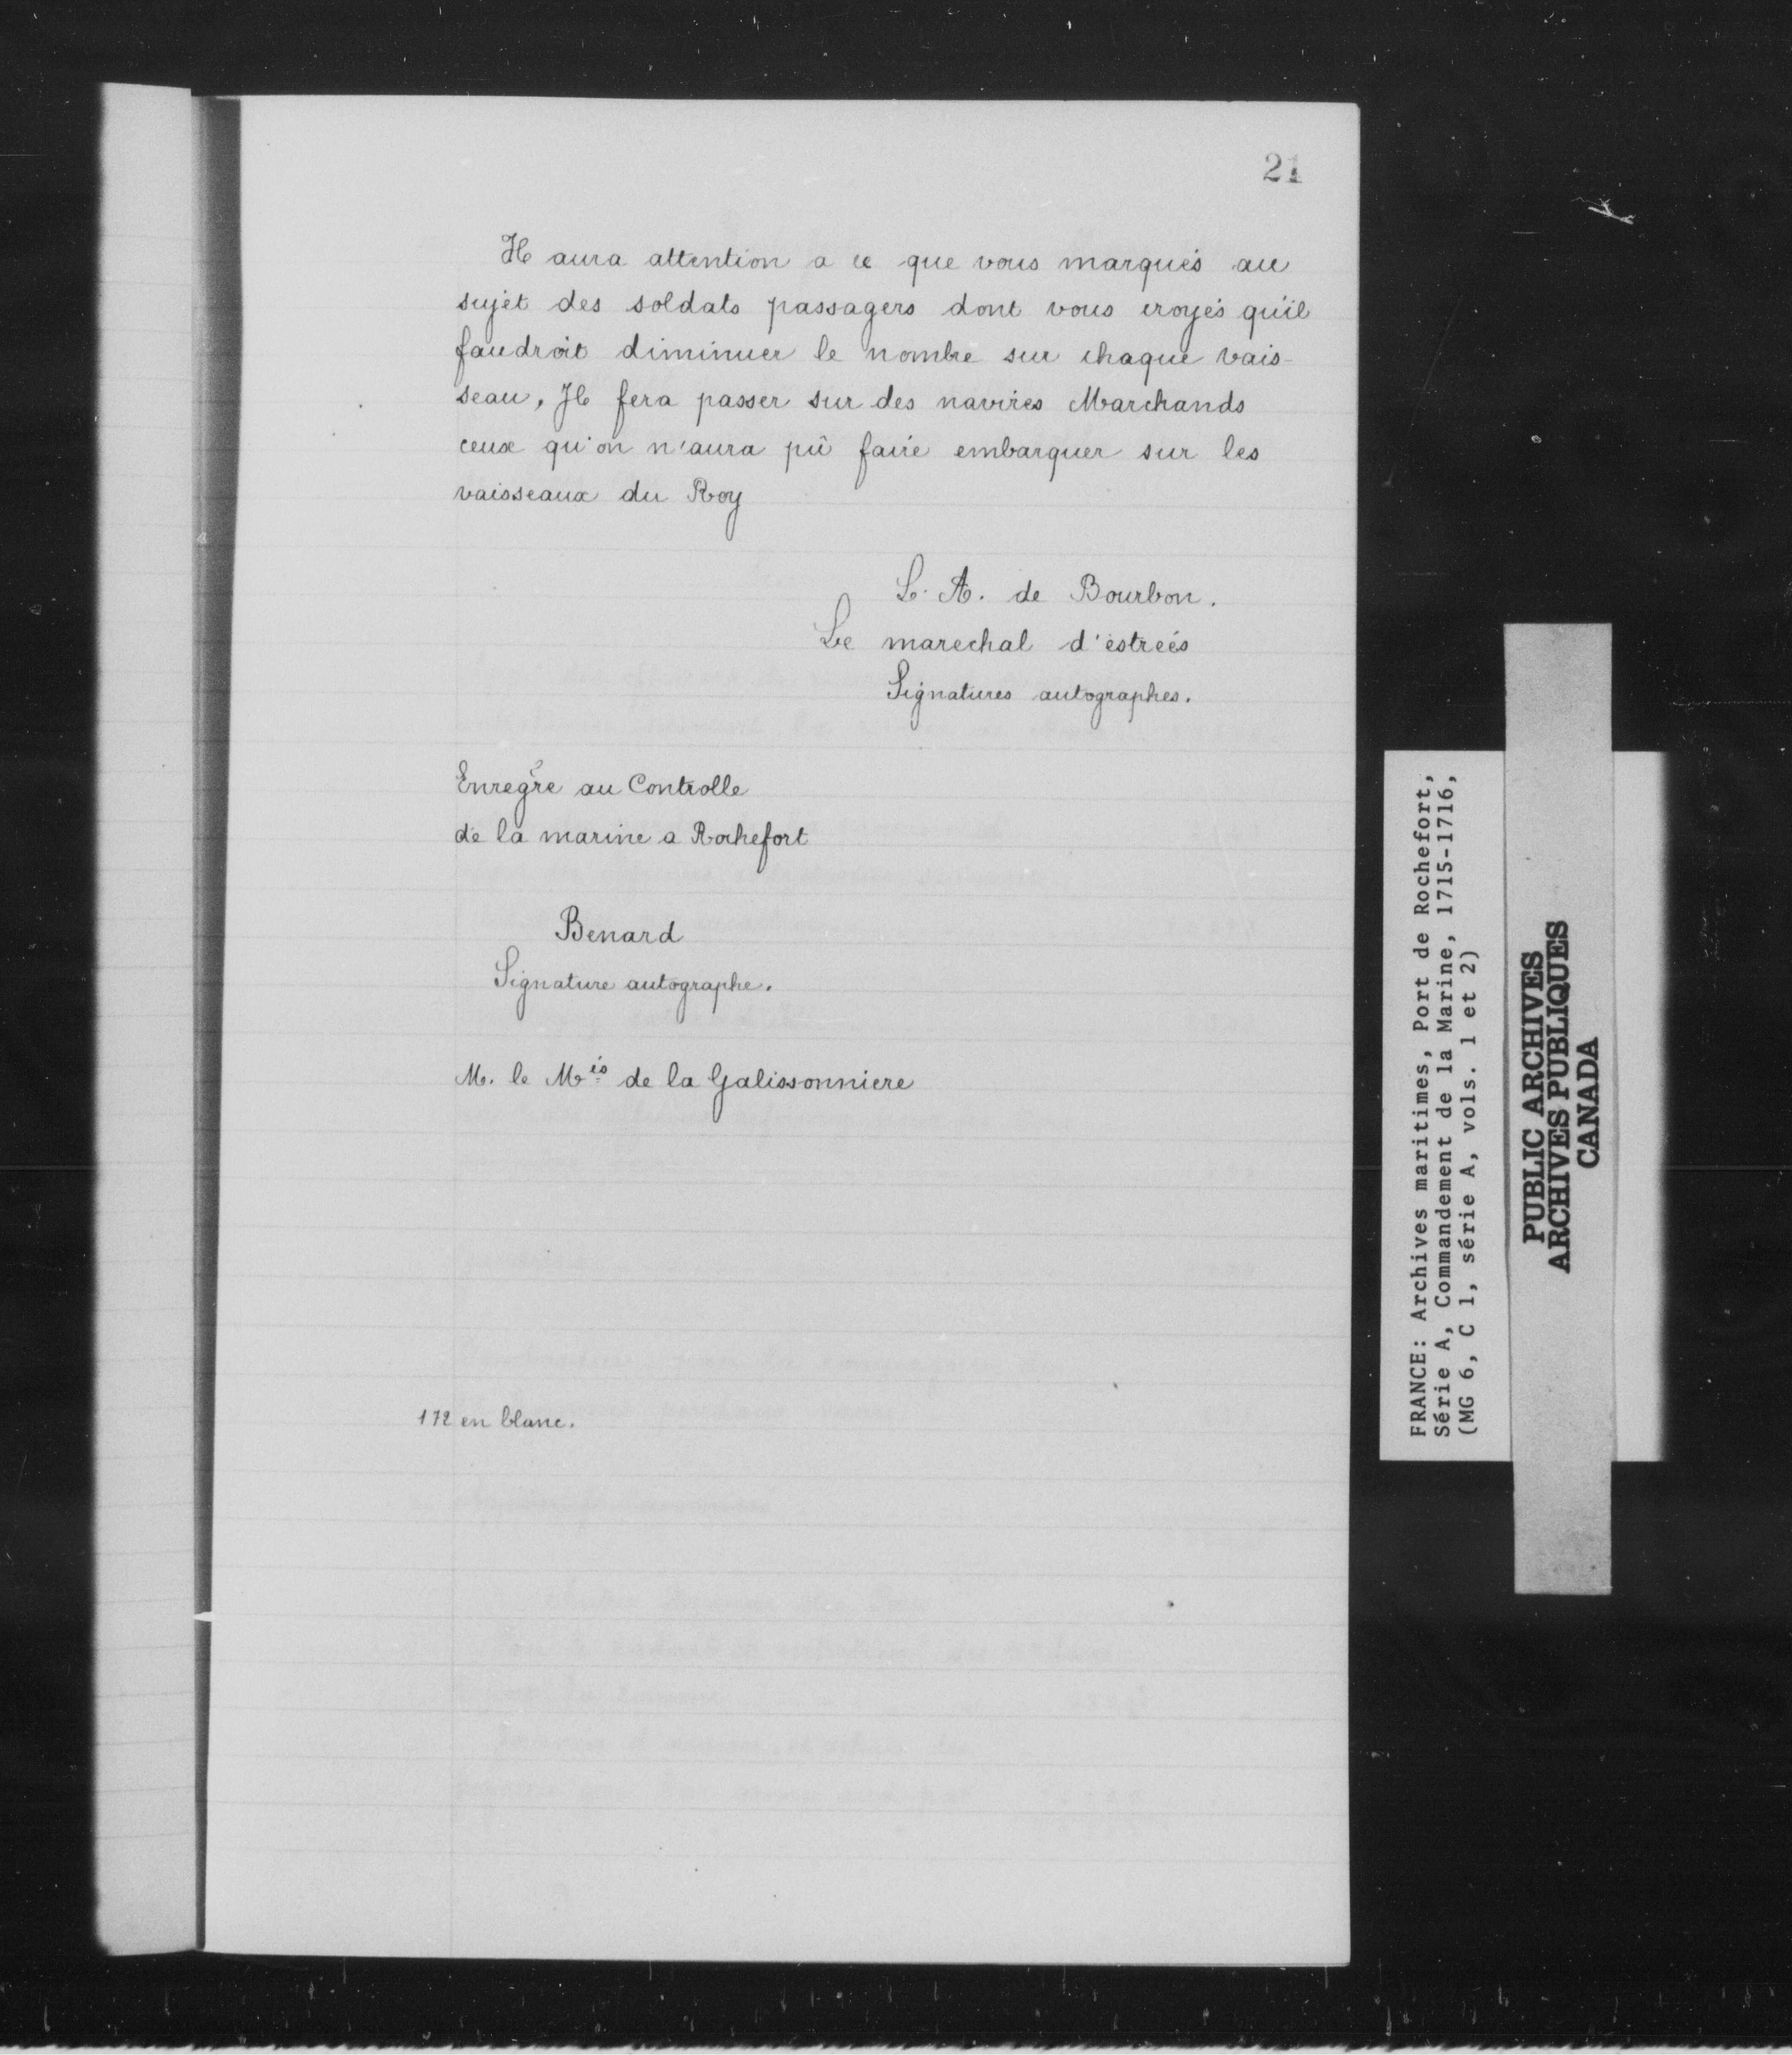 21
Il aura attention a ce que vous marqués au
sujet des soldats passagers dont vous croyés qu'il
faudroit diminuer le nombre sur chaque vais-
seau, Il fera passer sur des navires Marchands
ceux qu'on n'aura pû faire embarquer sur les
vaisseaux du Roy
L. A. de Bourbon.
Le marechal d'estreés
Signatures autographes.
Enregre au Controlle
de la marine a Rochefort
Benard
Signature autographe.
M. le Mis de la Galissonniere
172 en blanc.
FRANCE: Archives maritimes, Port de Rochefort,
Série A, Commandement de la Marine, 1715-1716,
(MG 6, C 1, série A, vols. 1 et 2)
PUBLIC ARCHIVES
ARCHIVES PUBLIQUES
CANADA